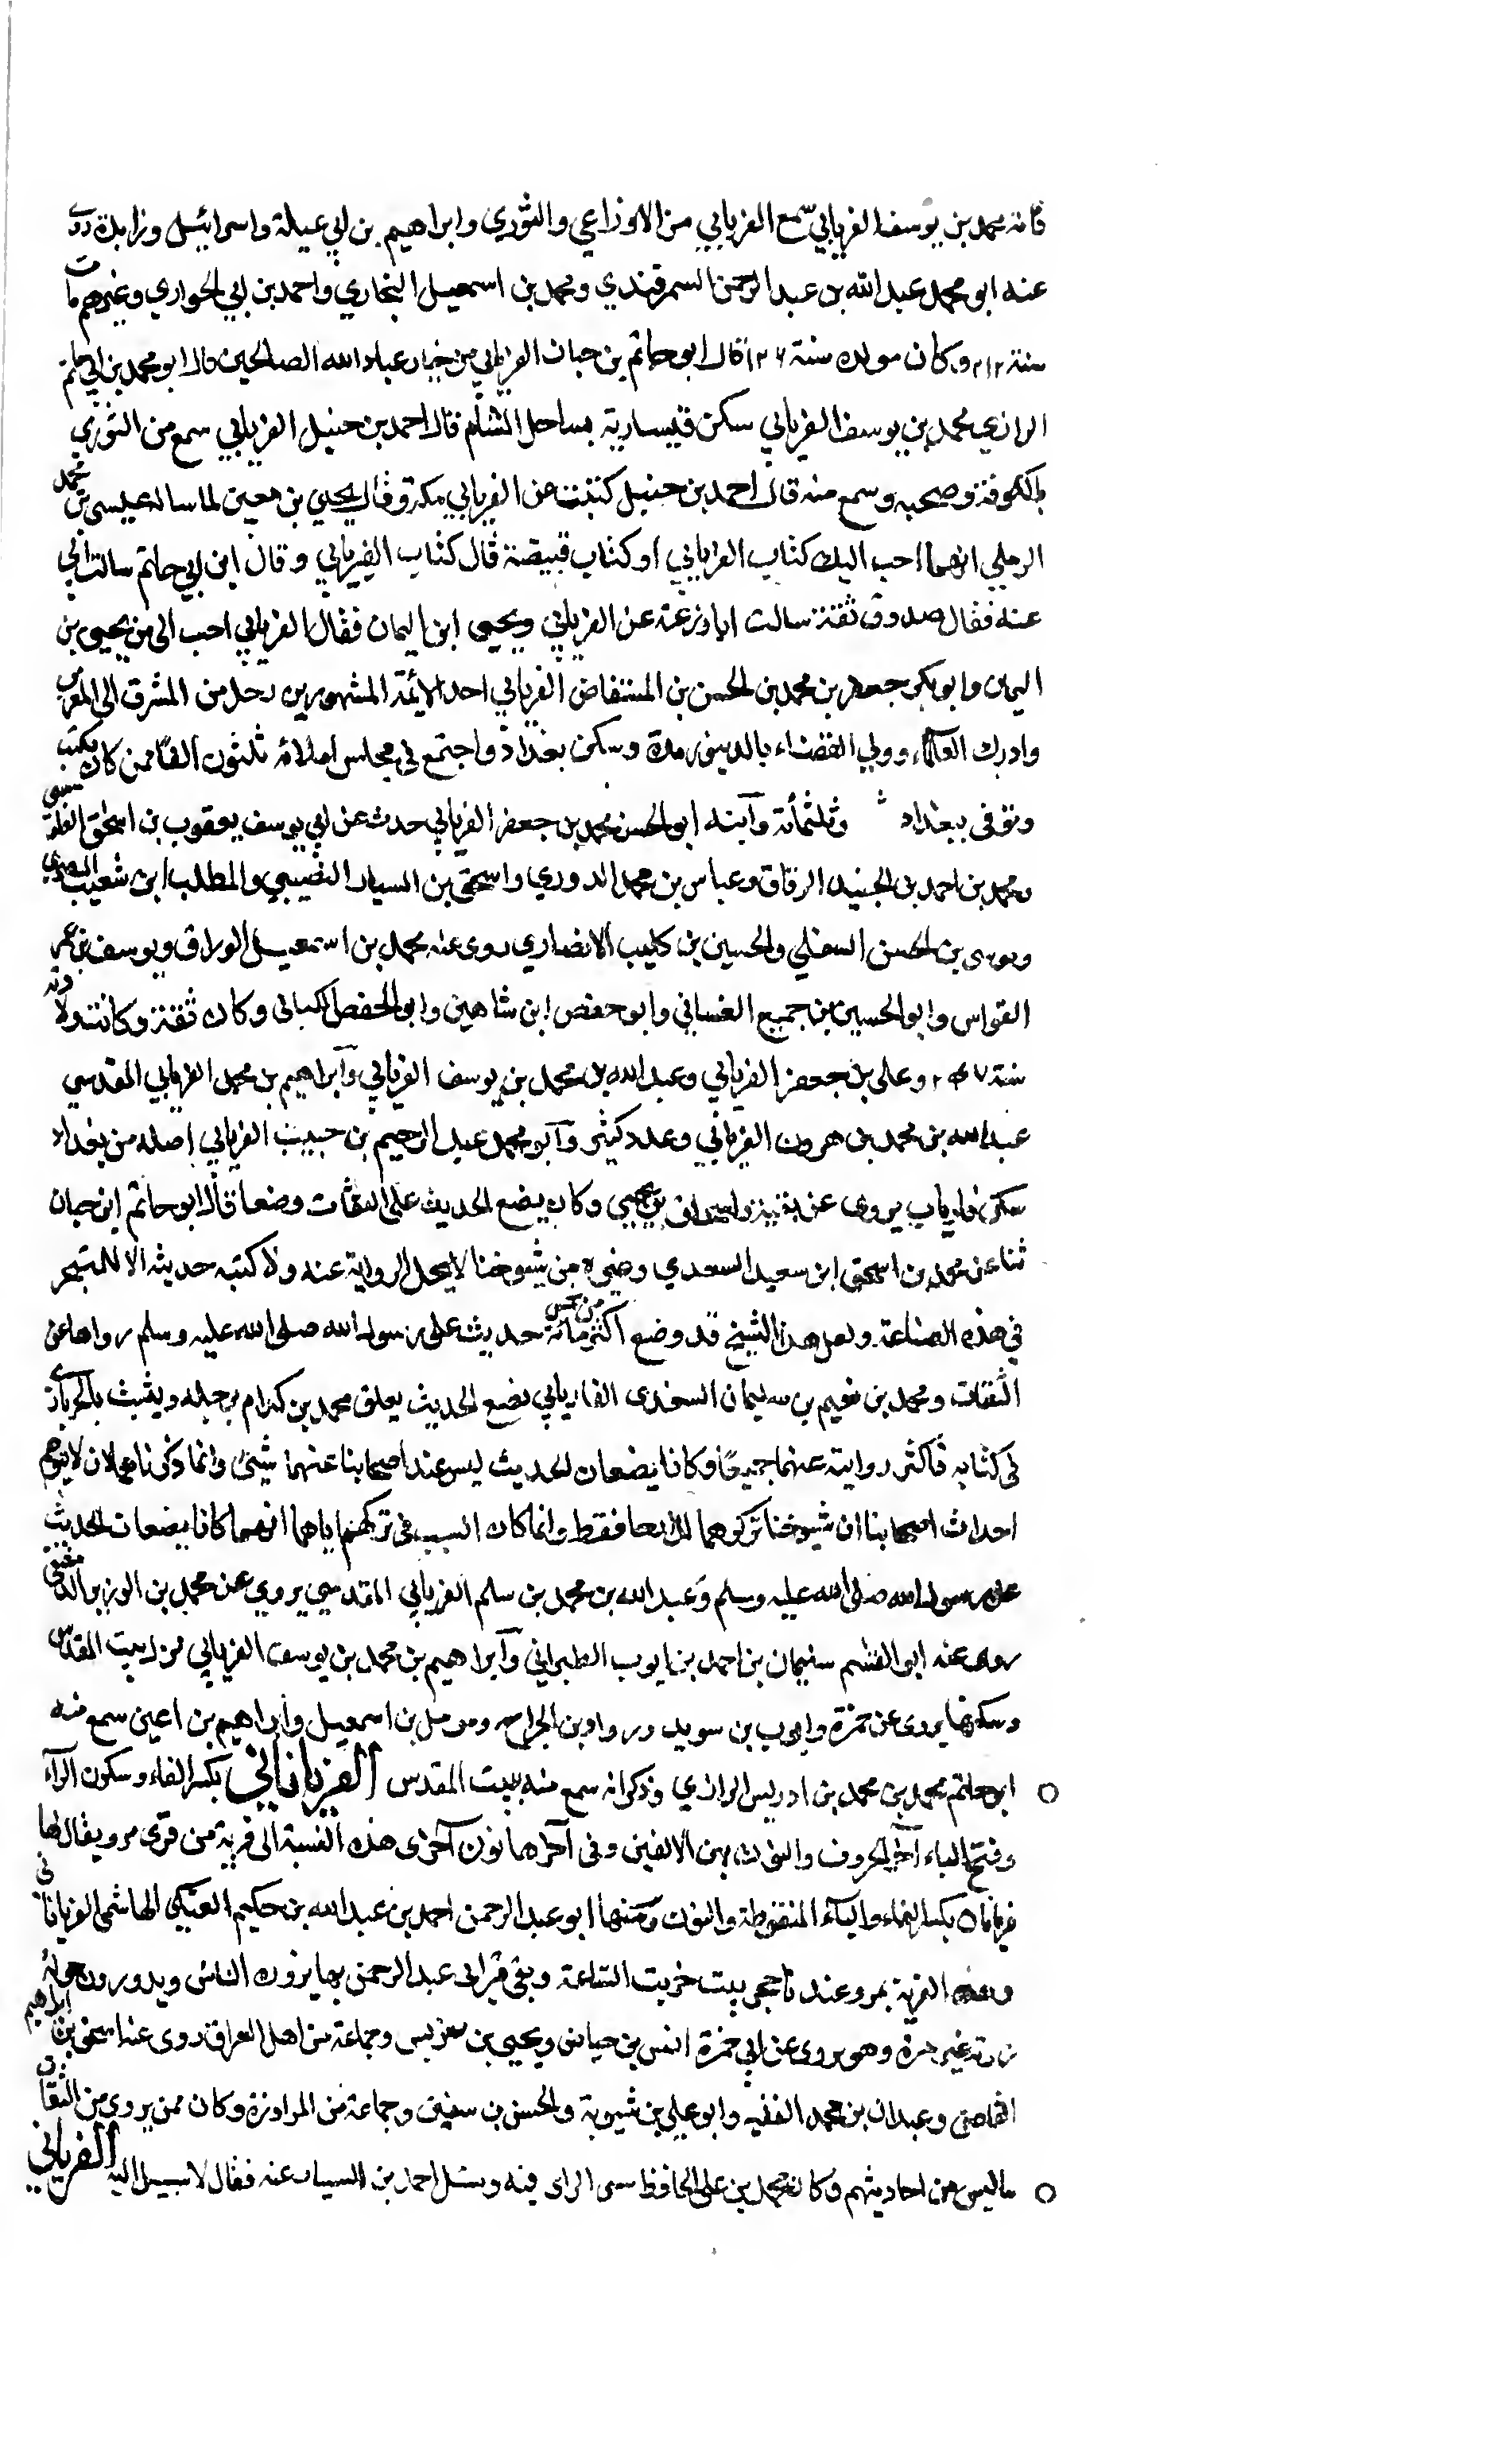 فانه محمد بن يوسف الفريابي سمع الفريابي من الاوزاعي والثوري وابراهيم بن ابي عبلة واسرائيل وزايدة روى
عنه ابو محمد عبد الله بن عبد الرحمن السمرقندي ومحمد بن اسمعيل البخاري واحمد بن ابي الحواري وغيرهم مات
سنة ٢١٢ وكان مولده سنة ١٢٦ قال ابو حاتم بن حبان الفريابي من خيار عباد الله الصالحين قال ابو محمد بن ابي حاتم
الرازي محمد بن يوسف الفريابي سكن قيسارية بساحل الشام قال احمد بن حنبل الفريابي سمع من الثوري
بالكوفة وصحبه وسمع منه قال احمد بن حنبل كتبت عن الفريابي بمكة وقال يحيى بن معين لما ساله عيسى بن محمد
الرملي ايهما احب اليك كتاب الفريابي او كتاب قبيصة قال كتاب الفريابي وقال ابن ابي حاتم سالت ابي
عنه فقال صدوق ثقة سالت ابا زرعة عن الفريابي ويحيى ابن اليمان فقال الفريابي احب الى من يحيى بن
اليمان وابو بكر جعفر بن محمد بن الحسن بن المستفاض الفريابي احد الائمة المشهورين رحل من المشرق الى المغرب
وادرك العلماء وولي القضاء بالدينور مدة وسكن بغداد واجتمع في مجلس املائه ثلثون الفا ممن كان يكتب
وتوفى ببغداد وثلثمائة وابنه ابو الحسن محمد بن جعفر الفريابي حدث عن ابي يوسف يعقوب بن اسحق القلوسي
ومحمد بن احمد بن الجنيد الدقاق وعباس بن محمد الدوري واسحق بن السيار النصيبي والمطلب ابن شعيب المصري
وموسى بن الحسن السقلي والحسين بن كليب الانصاري روى عنه محمد بن اسمعيل الوراق ويوسف بن عمر
القواس وابو الحسين بن جميع الغساني وابو حفص ابن شاهين وابو الحفص الكتاني وكان ثقة وكانت ولادته
سنة ٢٤٧ وعلى بن جعفر الفريابي وعبد الله بن محمد بن يوسف الفريابي وابراهيم بن محمد الفريابي المقدسي
عبد الله بن محمد بن هرون الفريابي وعدد كثير وابو محمد عبد الرحيم بن حبيب الفريابي اصله من بغداد
سكن فارياب يروى عن بقية واسحاق بن يحيى وكان يضع الحديث على الثقات وضعا قال ابو حاتم ابن حبان
ثنا عن محمد بن اسحق ابن سعيد السعدي وغيره من شيوخنا لا يحل الرواية عنه ولا كتبه حديثه الا للمتبحر
في هذه الصناعة ولعل هذا الشيخ قد وضع اكثر من خمس مائة حديث على رسول الله صلى الله عليه وسلم رواها عن
الثقات ومحمد بن تميم بن سليمان السعدى الفاريابي يضع الحديث يعلق محمد بن كرام برجله ويشبث بالجويباري
في كتابه فاكثر رواية عنهما جميعا وكانا يضعان الحديث ليس عند اصحابنا عنهما شيئ وانما ذكرناهما لان لا يتوهم
احداث اصحابنا ان شيوخنا تركوهما للارجا فقط وانما كان السبب في تركهم اياهما انهما كانا يضعان الحديث
على رسول الله صلى الله عليه وسلم وعبد الله بن محمد بن سلم الفريابي المقدسي يروي عن محمد بن الوزير الدمشقي
روى عنه ابو القسم سليمان بن احمد بن ايوب الطبراني وابراهيم بن محمد بن يوسف الفريابي نزل بيت المقدس
وسكنها يروى عن حمزة وايوب بن سويد ورواد بن الجراح ومومل بن اسمعيل وابراهيم بن اعين سمع منه
ابو حاتم محمد بن محمد بن ادريس الرازي وذكر انه سمع منه ببيت المقدس الفريانانى بكسر الفاء وسكون الراء
وفتح الياء آخر الحروف والنون بين الالفين وفى آخرها نون آخرى هذه النسبة الى قرية من قرى مرو يقال لها
فريانان بكسر الفاء والياء المنقوطة والنون ومنها ابو عبد الرحمن احمد بن عبد الله بن حكيم العتكى الهاشمى الفرياناني
وهذه القرية بمرو عند خربت الساعة وبقى قبر ابى عبد الرحمن بها يزوره الناس ويدورون حوله
زرته غير مرة وهو يروى عن ابي ضمرة انس بن عياض ويحيى بن وجماعة من اهل العراق روى عنه اسحق بن ابراهيم
القاضى وعبدان بن محمد الفقيه وابو علي بن شبوية والحسن بن سفين وجماعة من المراوزة وكان ممن يروى من الثقات
ما ليس من احاديثهم وكان محمد بن على الحافظ سيى الراى فيه وسئل احمد بن السيار عنه فقال لا سبيل اليه الفريانى